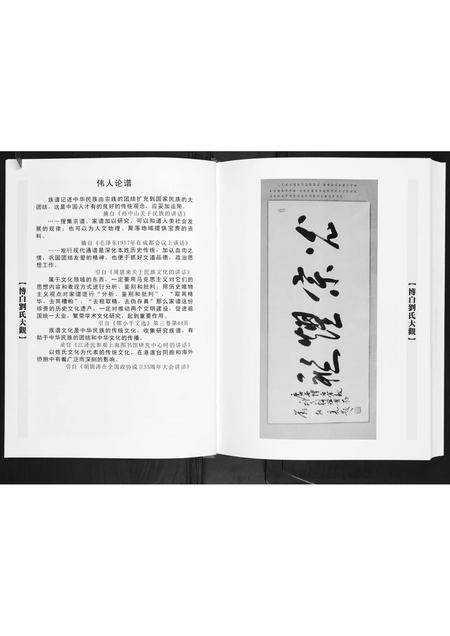 伟人论谱
族谱记述中华民族由宗族的团结扩充到国家民族的大
团结，这是中国人才有的良好的传统观念，应妥加运用。
摘自《孙中山关于民族的讲话》
……搜集宗谱、家谱加以研究，可以知道人类社会发
展的规律；也可以为人文地理、聚落地域提供宝贵的资
料。
摘自《毛泽东1957年在成都会议上谈话》
……发行现代通谱是深化本姓历史传统，加认血肉之
情，巩固团结友爱的精神，也便于抓好文道品德，政治思
想工作。
引自《周恩来关于民族文化的讲话》
属于文化领域的东西，一定要用马克思主义对它们的
思想内容和表现方式进行分析、鉴别和批判。用历史唯物
主义观点对家谱进行“分析、鉴别和批判”，“取其精
华，去其糟粕”，“去粗取精，去伪存真”那么家谱这份
珍贵的历史文化遗产，一定对推动两个文明建设，促进祖
国统一大业，繁荣学术文化研究，起到重要作用。
引自《邓小平文选》第三卷第44页
族谱文化是中华民族的传统文化，收集研究族谱，有
助于中华民族的团结和中华文化的传播。
录自《江泽民参观上海图书馆研究中心时的讲话》
以姓氏文化为代表的传统文化，在港澳台同胞和海外
侨胞中有着广泛而深刻的影响。
引自《胡锦涛在全国政协成立55周年大会讲话》
【博白劉氏大觀】
光宗耀祖
【博白劉氏大觀】